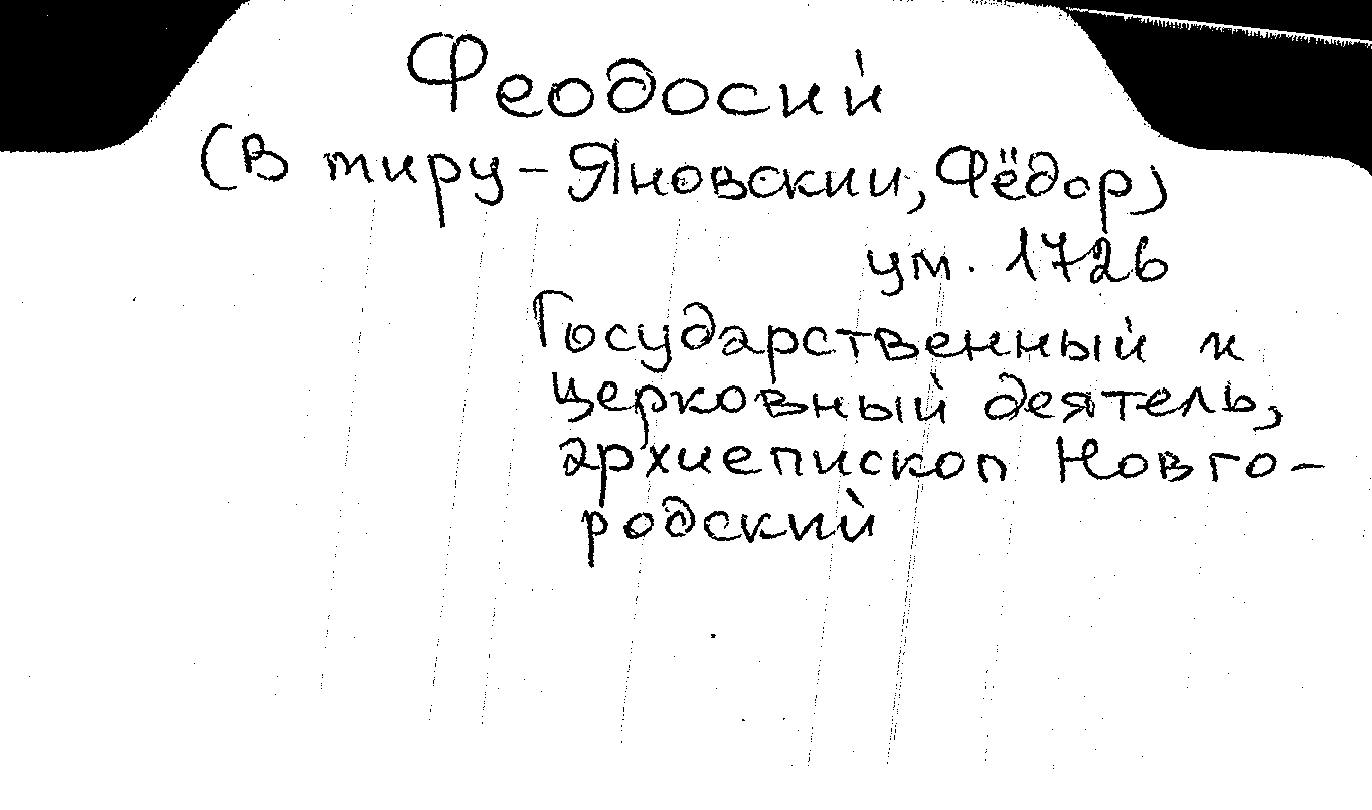 Феодосий
(в миру – Яновский, Фёдор)
ум. 1726
Государственный и
церковный деятель,
архиепископ Новго-
родский